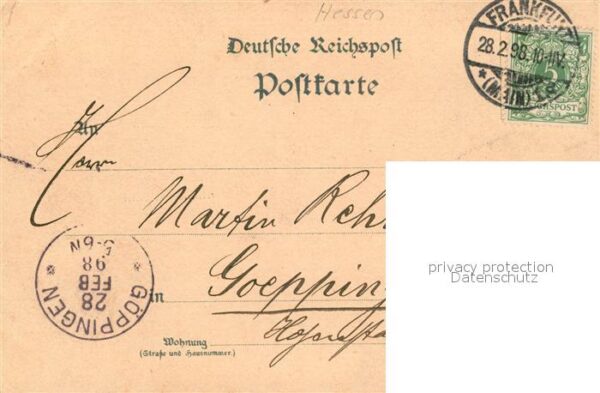 Hessen
FRANKFURT
28.2.98.10-11V.
* (MAIN) 1.
REICHSPOST
Deutsche Reichspost
Postkarte
An
Herrn
Martin
privacy protection
Datenschutz
in Goeppin
GÖPPINGEN
28
FEB
98
5-6N
Wohnung
(Straße und Hausnummer.)